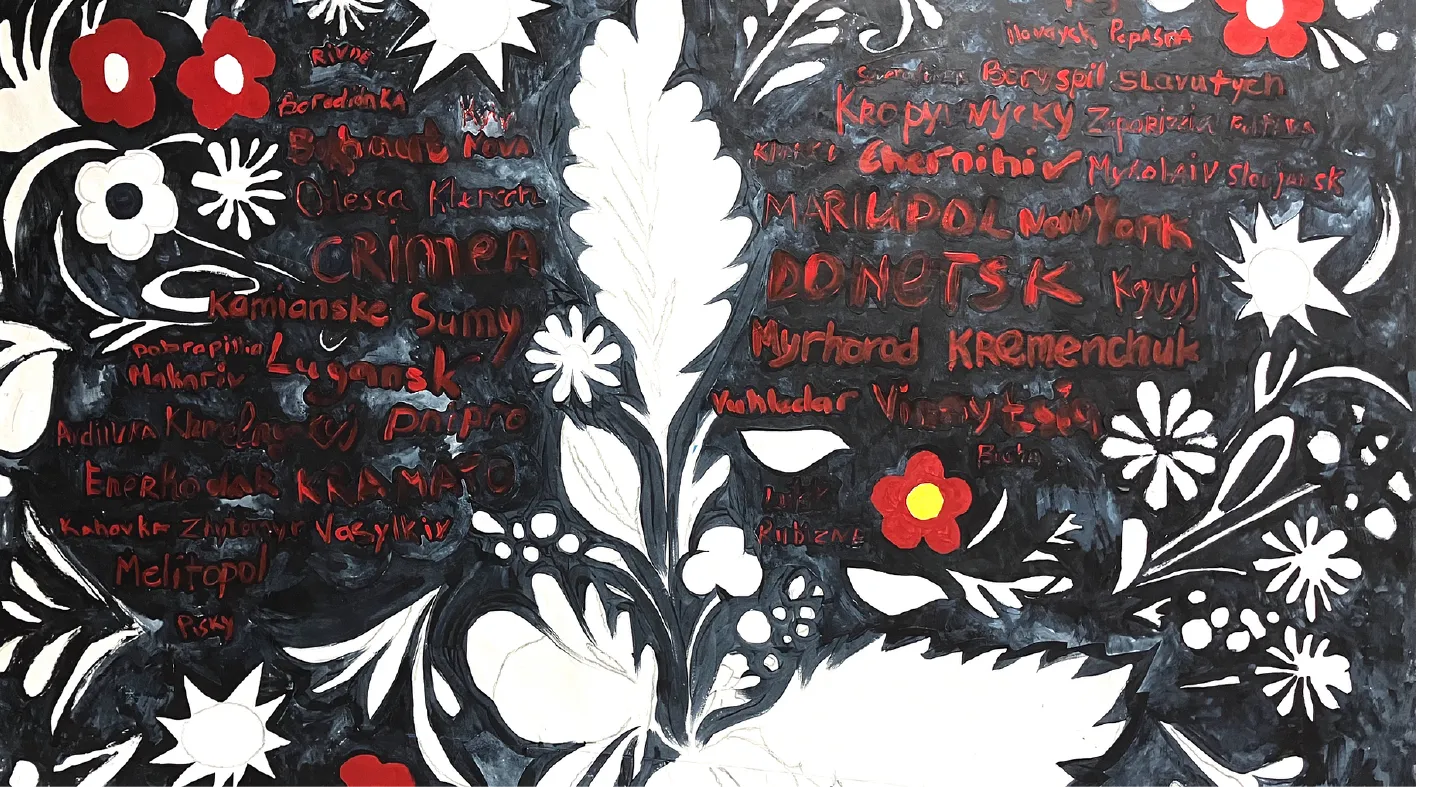 RIVNE
Borodianka
Bakhmut Nova
Odessa Kherson
CRIMEA
Kamianske Sumy
Lugansk
Makariv
Dnipro
Enerhodar KRAMATO
Kahovka Zhytomyr Vasylkiv
Melitopol
Pisky
Ilovaysk POPASNA
Boryspil Slavutych
KROPYVNYCKY Zaporizzia Poltava
Chernihiv Mykolaiv Slovjansk
MARIUPOL NewYork
DONETSK Kyyyj
Myrhorod KREmenchuk
Vuhledar Vinnytsia
Bucha
RUBIZNE